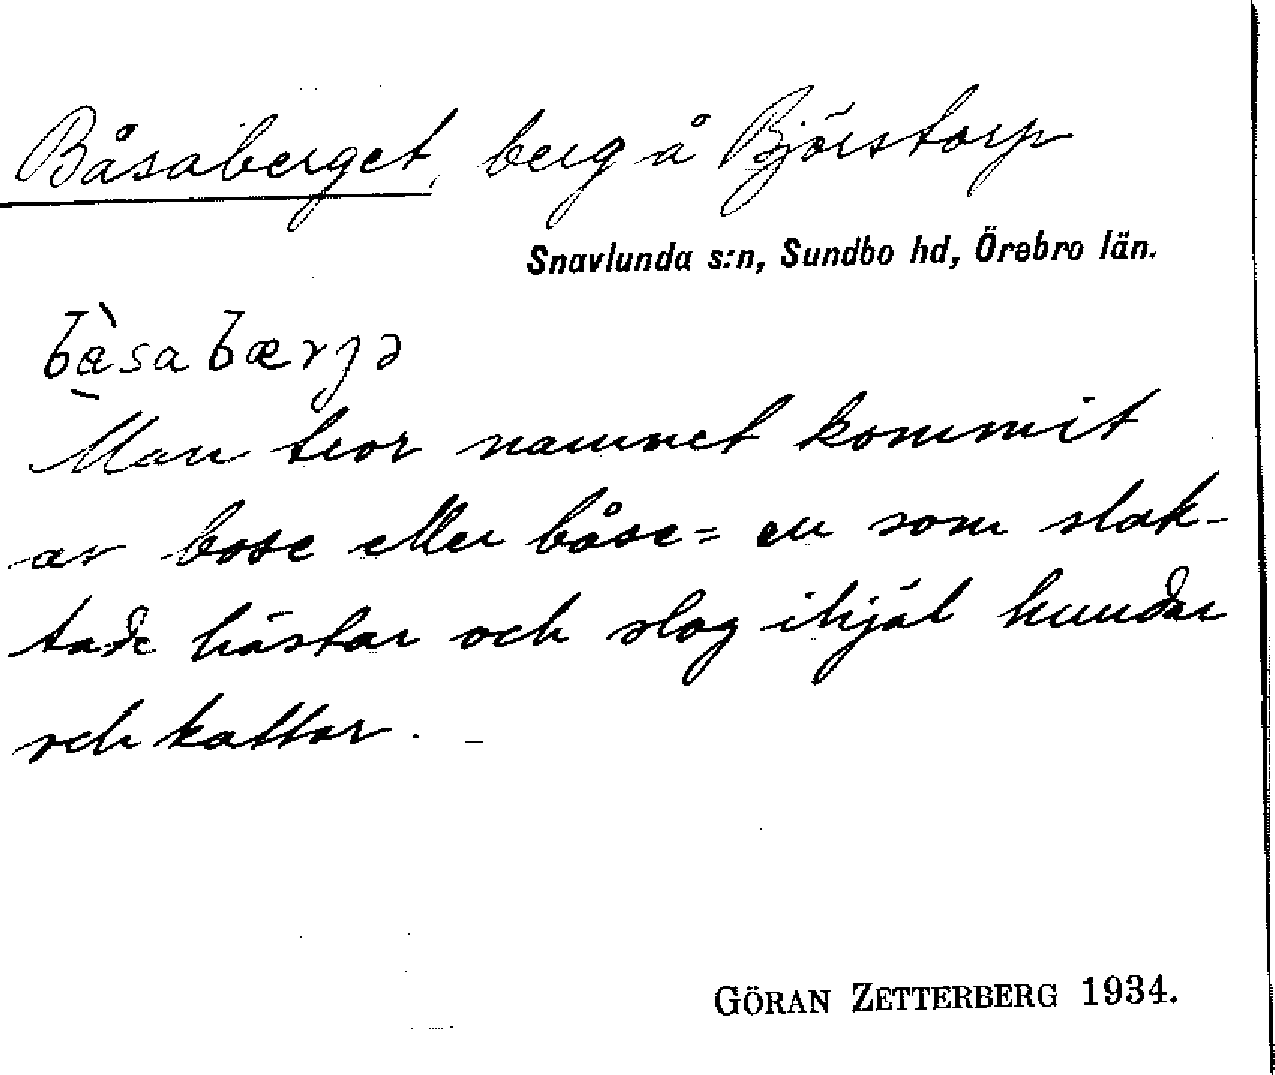 Båsaberget, berg å Björstorp
Snavlunda s:n, Sundbo hd, Örebro län.
bàsabærgə
Man tror namnet kommit
av bose eller båse = en som slak-
tade hästar och slog ihjäl hundar
och kattor. –
GÖRAN ZETTERBERG 1934.